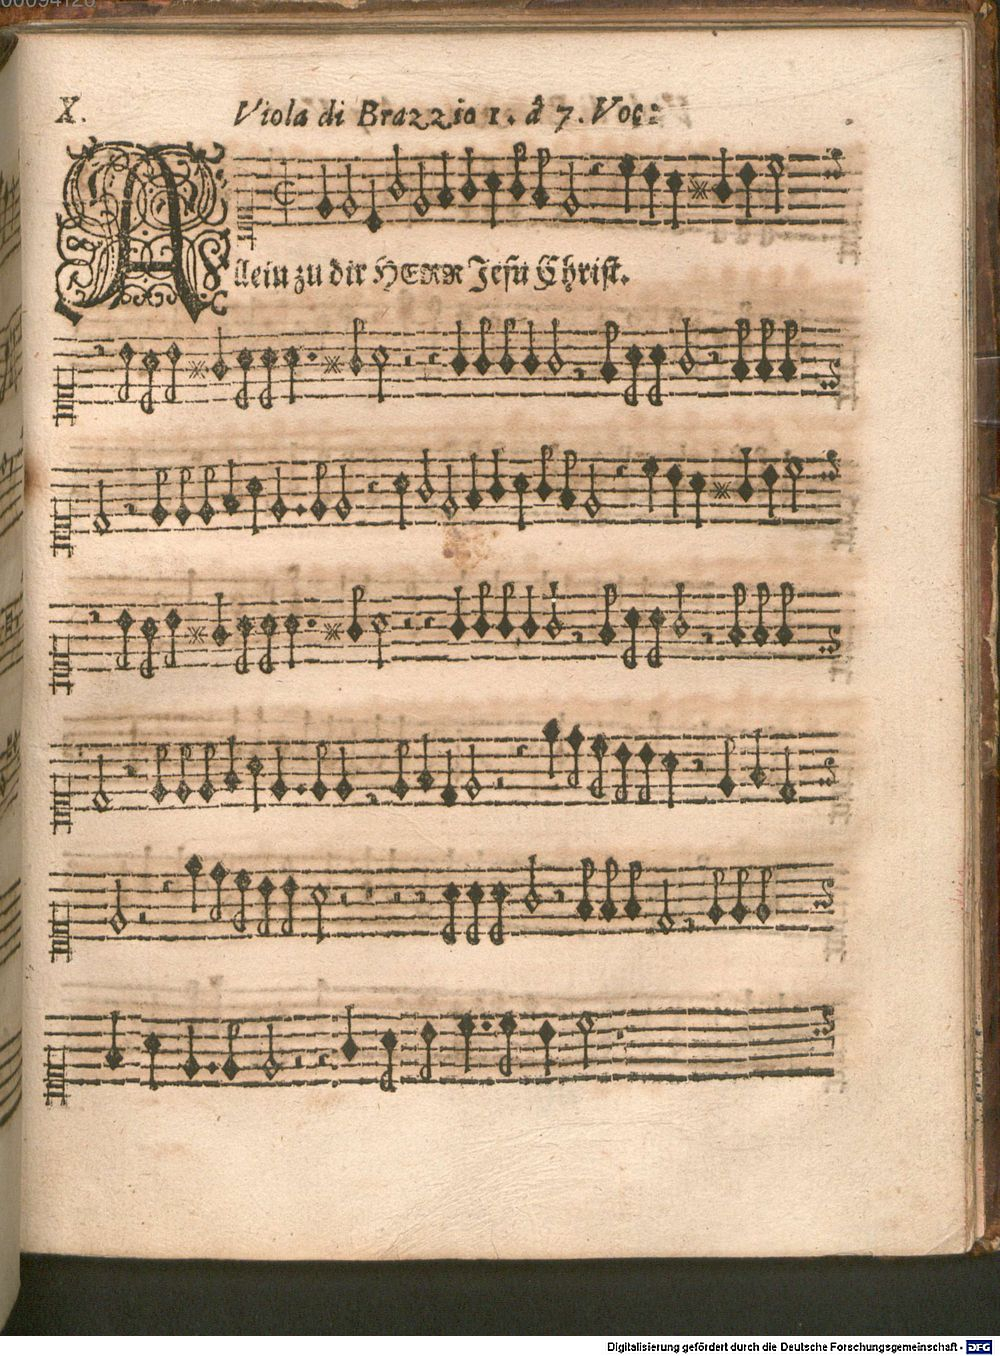 00094126
X. Viola di Brazzio 1. â 7. Voc:
Allein zu dir HERR Jesu Christ.
Digitalisierung gefördert durch die Deutsche Forschungsgemeinschaft - DFG